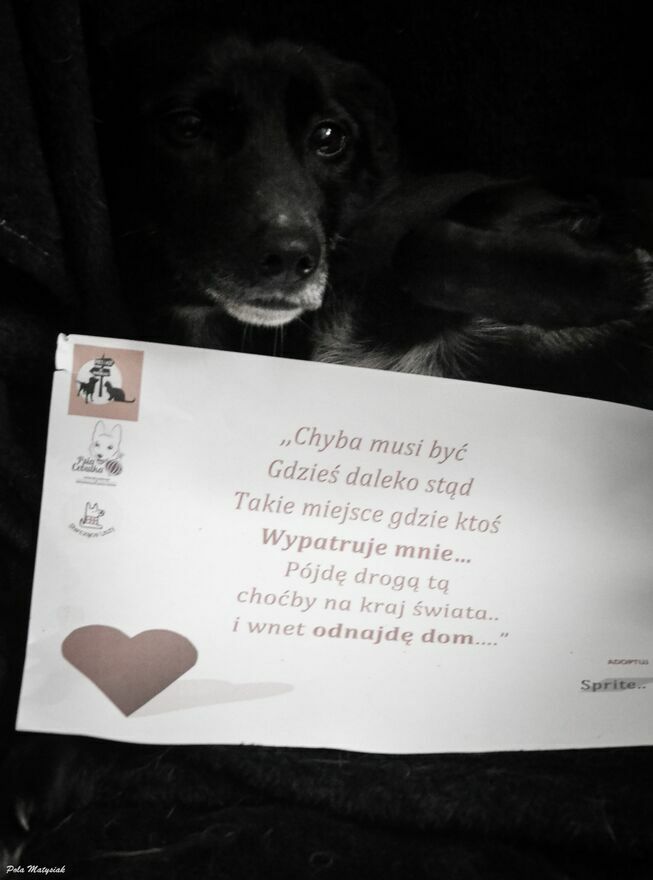 Psia
Cebulka
„Chyba musi być
Gdzieś daleko stąd
Takie miejsce gdzie ktoś
Wypatruje mnie...
Pójdę drogą tą
choćby na kraj świata..
i wnet odnajdę dom....”
ADOPTUJ
Sprite..
Pola Matysiak